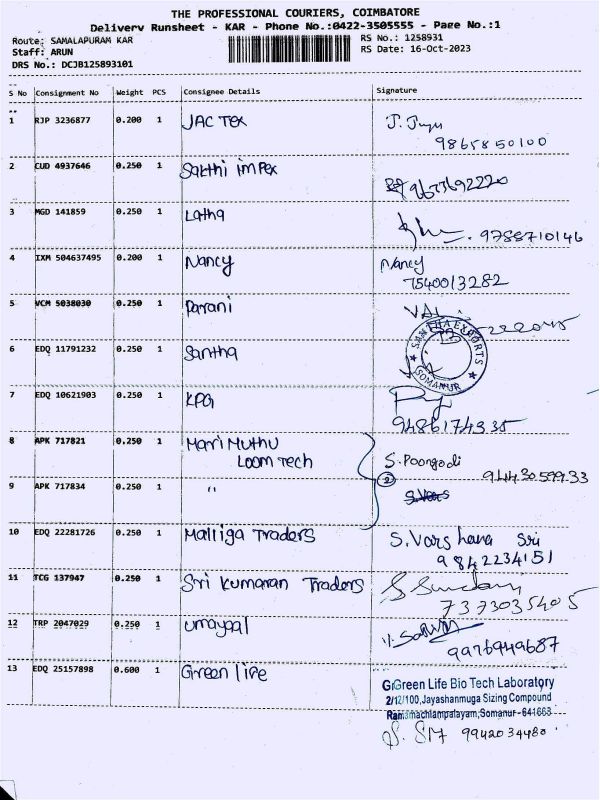 THE PROFESSIONAL COURIERS, COIMBATORE
Delivery Runsheet - KAR - Phone No.:0422-3505555 - Page No.:1
Route: SAMALAPURAM KAR
RS No.: 1258931
Staff: ARUN
RS Date: 16-Oct-2023
DRS No.: DCJB125893101
S No Consignment No Weight PCS Consignee Details Signature
1 RJP 3236877 0.200 1 JAC Tex
9865850100
2 CUD 4937646 0.250 1 Sakthi impex
9673692220
3 MGD 141859 0.250 1 Latha
9788710146
4 IXM 504637495 0.200 1 Nancy Nancy
7540013282
5 VCM 5038030 0.250 1 Parani
6 EDQ 11791232 0.250 1 Santha
SANTHA EXPORTS
SOMANUR
7 EDQ 10621903 0.250 1 KPG
9486174335
8 APK 717821 0.250 1 Mari Muthu
Loom Tech S. Poongodi
9443059933
9 APK 717834 0.250 1 "
2
10 EDQ 22281726 0.250 1 Malliga Traders S. Varshana Sri
9842234151
11 TCG 137947 0.250 1 Sri Kumaran Traders
7373035405
12 TRP 2047029 0.250 1 Umayaal
9976949687
13 EDQ 25157898 0.600 1 Green life
Green Life Bio Tech Laboratory
2/12/100,Jayashanmuga Sizing Compound
Ramachiampalayam,Somanur-641668
9942034480